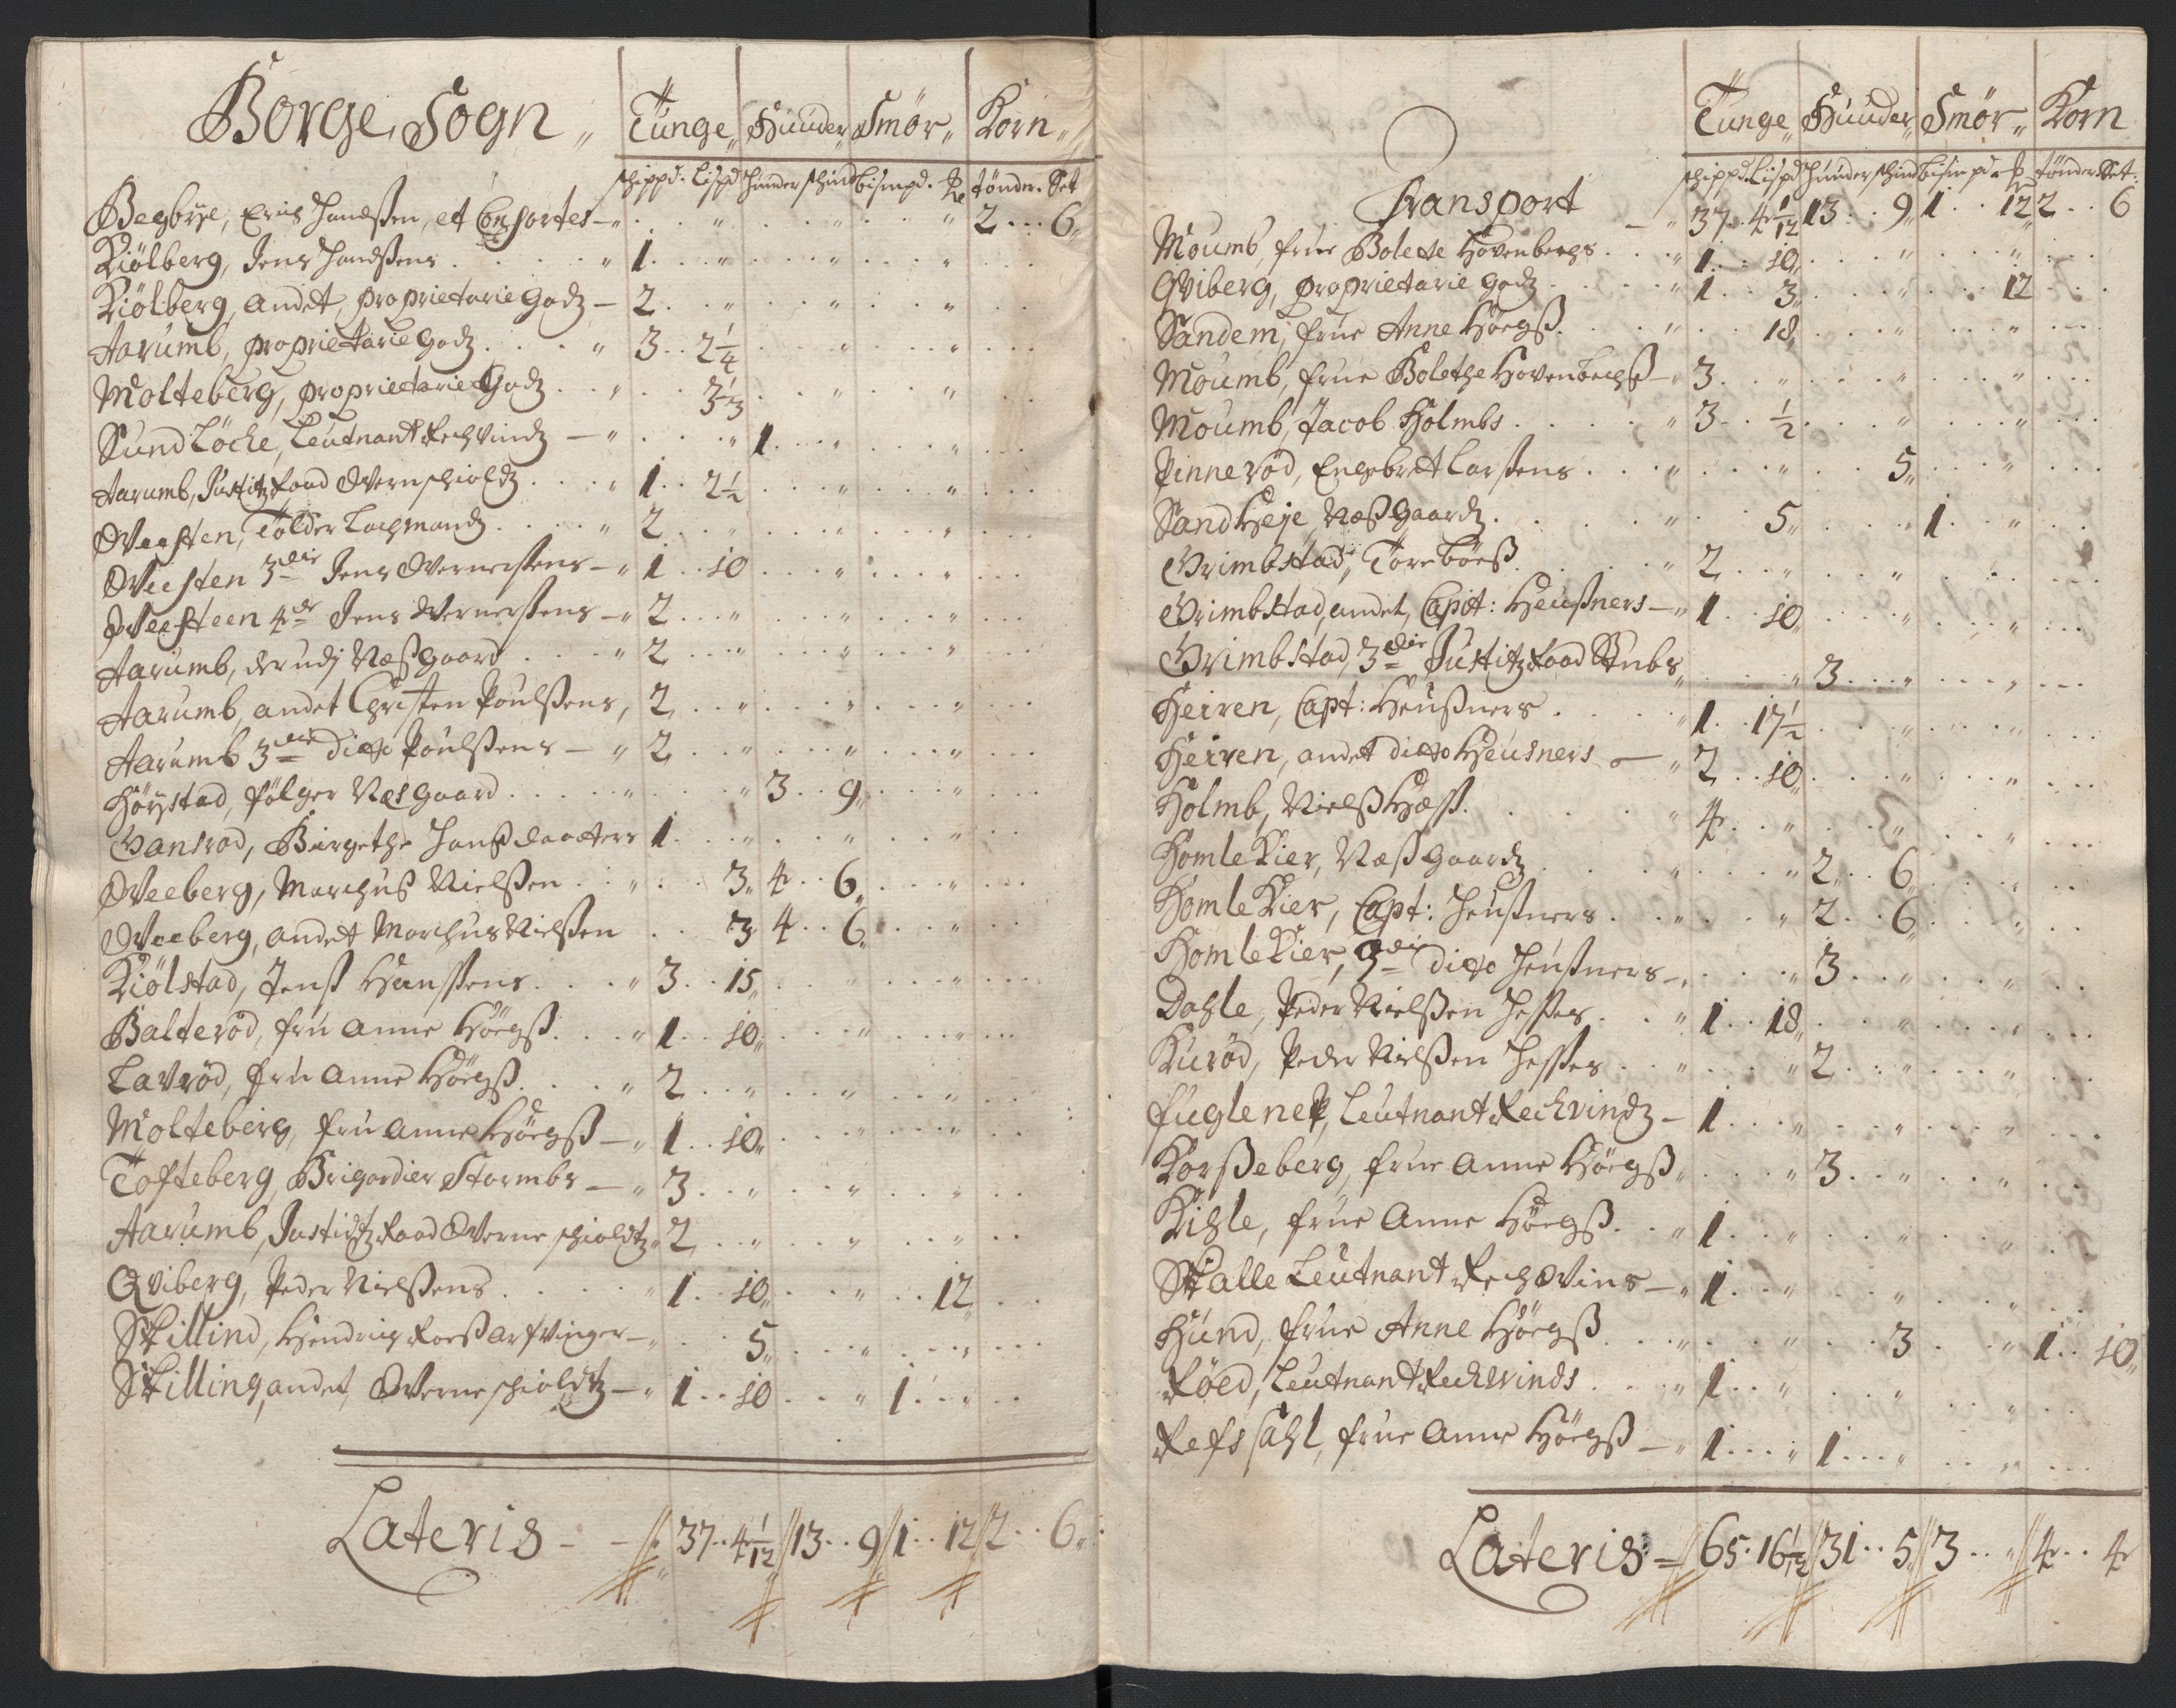 Borge Sogn „ Tunge„ Huuder„ Smör„ Korn„
schippd. Lispd Huuder schind bismpd. ℔ tönder. Set
Begbÿe, Eric Hanssen, et Consortes – „ 2 . . . 6„
Kiölberg, Jens Handsens . . . „ 1 . . .
Kiölberg, andet proprietarie Godz – 2 . . .
Aarumb, proprietarie Godz . . . „ 3 . . 2 1/4
Molteberg, proprietarie Godz . . . „ 3 1/3
Sund Löche, Leutnant Rechvindz – „ . . . 1
Aarumb, Justitz Raad Overnschioldz . . . „ 1 . . 2 1/2
Oveesten, Tolder Lachmandz . . . „ 2
Oveesten 3die Jens Overnersens – „ 1 . . 10
Oveesteen 4de Jens Overnersens – „ 2
Aarumb, derudj Næssgaard . . . „ 2
Aarumb, andet Christen Poulssens, 2
Aarumb 3die dito Poulssens – „ 2
Höÿstad, fölger Næsgaard . . . „ 3 . . 9„
Gansrod, Birgethe Hanssdaatters 1
Oveeberg, Marchuss Nielssen . . . „ 3„ 4 . . 6„
Oveeberg, andet Marchus Nielssen . . 3 4 . . 6„
Kiölstad, Jenss Hanssens . . . „ 3 . . 15„
Balteröd, fru Anne Höegss . . . „ 1 . . 10„
Lavröd, fru Anne Höegss . . . „ 2
Molteberg, fru Anne Höegss – „ 1 . . 10„
Tofteberg, Brigardier Stormbs – „ 3
Aarumb, Justidtz Raad Overneschioldtz „ 2
Qviberg, Peder Nielssens . . . „ 1 . . 10„ . . . 12„
Skillind, Hendrich Roess Arfvinger – „ . . 5„
Skilling, andet Overneschioldtz – „ 1 . . 10 . . . „ 1
Lateris – – 37 . . 4 1/12 13 . . 9 1 . . 12 2 . . 6„
Tunge„ Huuder„ Smör„ Korn
schippd. Lispd Huuder schind bismpd. ℔ tönder. Set:
Transport – „ 37 . . 4 1/12 13 . . 9„ 1 . . 12„ 2 . . 6
Moumb, frue Bolette Hovenbechs . . . „ 1 . . 10„
Qviberg, proprietarie Godz . . . „ 1 . . 3„ . . . 12
Sandem, frue Anne Höegss . . . „ 18„
Moumb, frue Bolethe Hovenbechss – „ 3
Moumb, Jacob Holmbs . . . „ 3 . . 1/2
Pinneröd, Engebret Larssens . . . „ 5„
Sand Heje, Næssgaardz . . . „ 5„ . . . 1
Grimbstad, Tore Böess . . . „ 2
Grimbstad, andet, Capt: Heussners – „ 1 . . 10„
Grimbstad, 3die Justitz Raad Stubs „ . . . 3
Heiren, Capt: Heussners . . . „ 1 . . 17 1/2
Heiren, andet dito Heusners – „ 2 . . 10„
Holmb, Nielss Hæss . . . „ 4
Homle Kier, Næssgaardz . . . „ 2 . . 6„
Homle Kier, Capt: Heussners . . . „ 2 . . 6„
Homle Kier, 3die dito Heussners – „ 3
Dahle, Peder Nielssen Hesses . . . „ 1 . . 18„
Kuröd, Peder Nielssen Hesses . . . „ 2
fuglenep, Leutnant Rechvindz – 1
Korsseberg, frue Anne Höegss „ . . . 3
Kihle, frue Anne Höegss . . . „ 1
Skalle Leutnant Rechovins – „ 1
Hund, frue Anne Höegss . . . „ 3 . . „ 1 . . 10„
Röed, Leutnant Rechvinds . . . „ 1
Refssahl, frue Anne Höegss – „ 1 . . . „ 1
Lateris – 65 . 16 1/12 31 . . 5„ 3 . . „ 4 . . 4